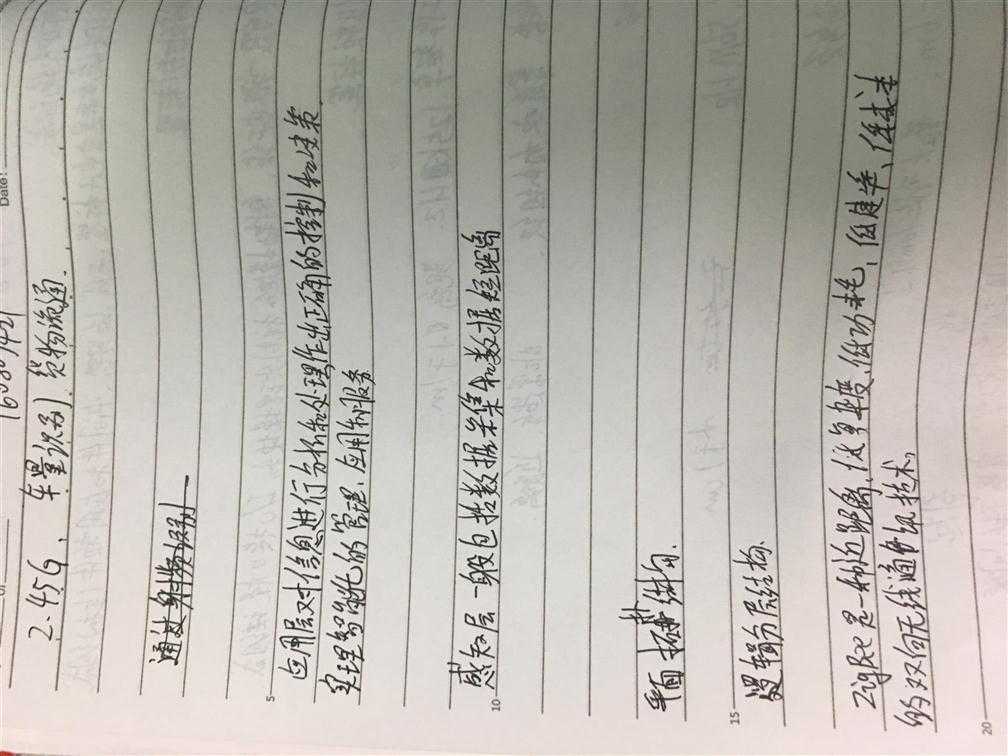 Date:
2.45G、车量识别、货物流通.
5
应用层对信息进行分析和处理作出正确的控制和决策
实理智能化的管理、应用和服务
感知层一般包括数据采集和数据短距离
10
平面拓扑结构.
15
逻辑分层结构.
ZigBee是一种近距离、低复杂度、低功耗、低速率、低成本
的双向无线通信技术。
20